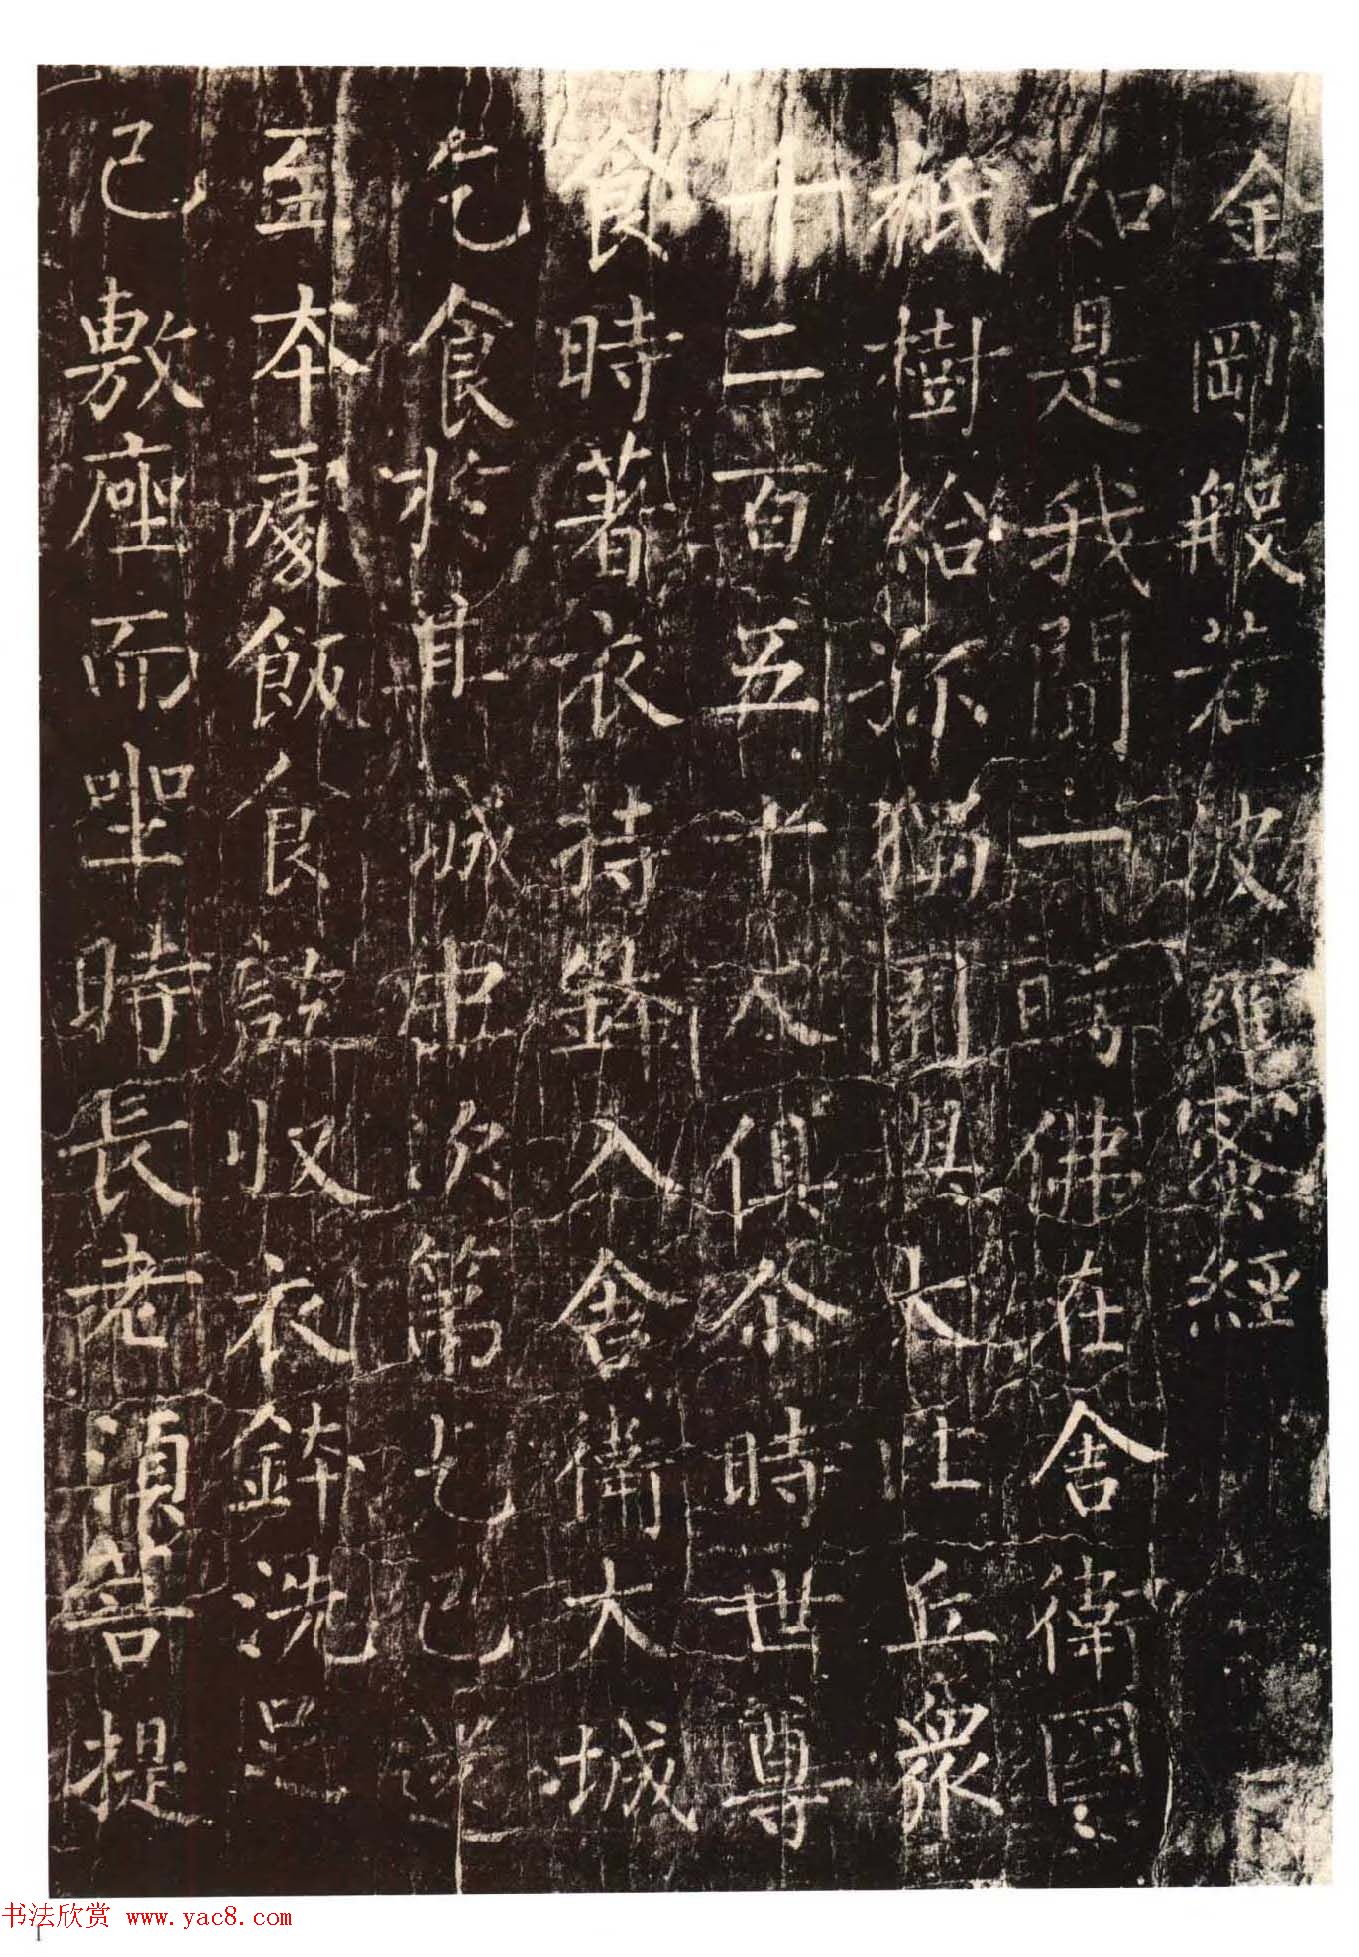 金剛般若波羅蜜經
如是我聞一時佛在舍衛國
祇樹給孤獨園與大比丘衆
千二百五十人俱尒時世尊
食時著衣持鉢入舍衛大城
乞食於其城中次第乞已還
至本處飯食訖收衣鉢洗足
已敷座而坐時長老須菩提
书法欣赏 www.yac8.com
1